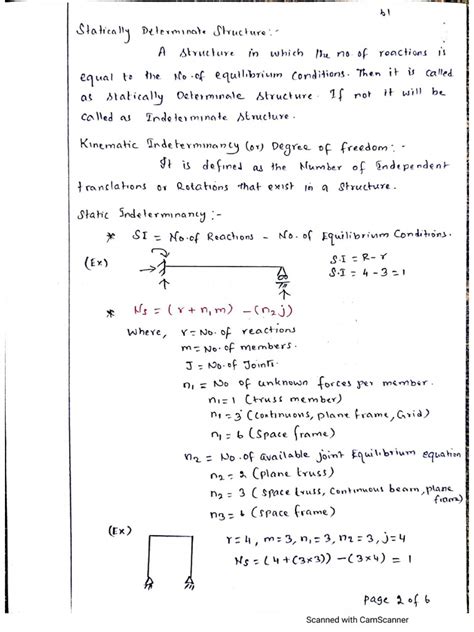 b1
Statically Determinate Structure:-
A structure in which the no of reactions is
equal to the No. of equilibrium conditions. Then it is called
as statically Determinate structure. If not it will be
called as Indeterminate structure.
Kinematic Indeterminancy (or) Degree of freedom:-
It is defined as the Number of Independent
translations or Rotations that exist in a structure.
Static Indeterminancy:-
* SI = No. of Reactions - No. of Equilibrium Conditions.
(Ex)
S.I = R - r
S.I = 4 - 3 = 1
* Ns = (r + n1m) - (n2j)
Where, r = No. of reactions
m = No. of members.
J = No. of Joints.
n1 = No of unknown forces per member.
n1 = 1 (truss member)
n1 = 3 (continuous, plane frame, Grid)
n1 = 6 (Space frame)
n2 = No. of available joint Equilibrium equation
n2 = 2 (Plane truss)
n2 = 3 (Space truss, Continuous beam, plane frame)
n3 = 6 (Space frame)
(Ex)
r = 4, m = 3, n1 = 3, n2 = 3, j = 4
Ns = (4 + (3×3)) - (3×4) = 1
Page 2 of 6
Scanned with CamScanner